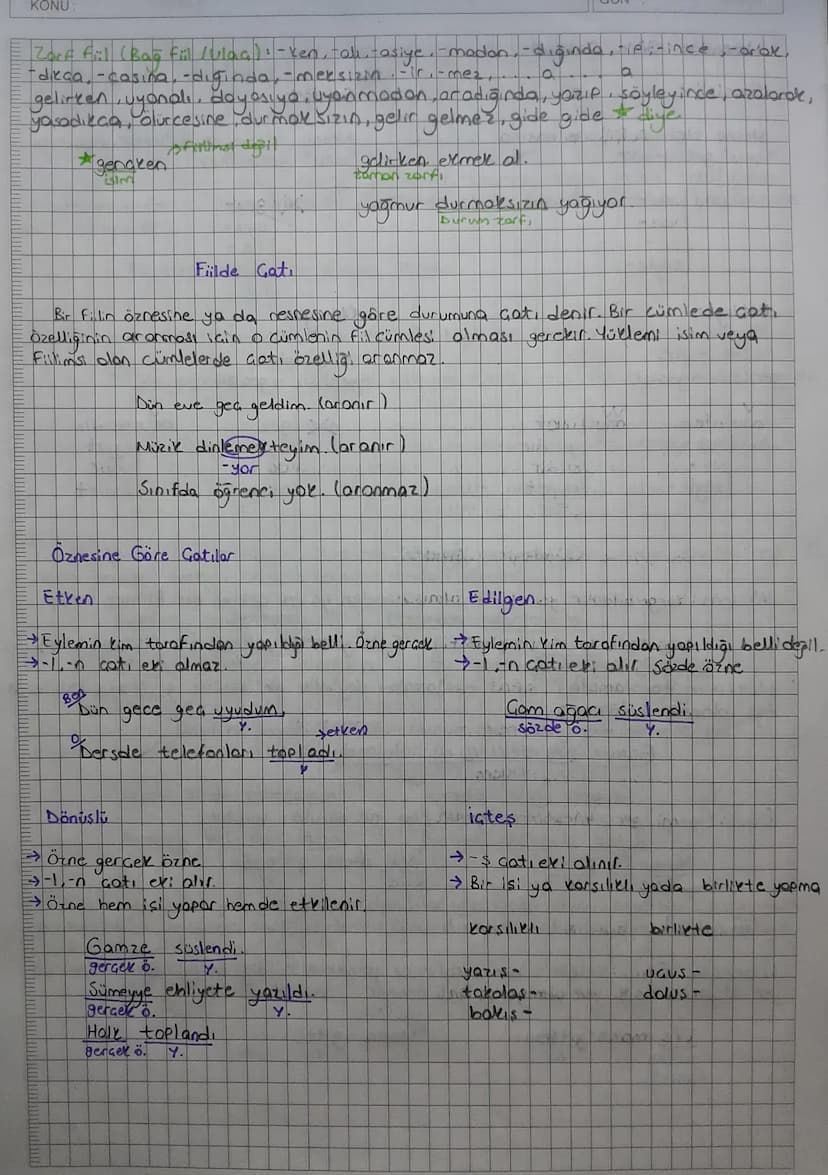 KONU :
Zarf fiil (Bağ fiil / Ulaç): -ken, -alı, -asıya, -madan, -dığında, -ip, -ince, -arak,
-dıkça, -casına, -dığında, -meksizin, -ir, -mez, ... a ... a
gelirken, uyanalı, doyasıya, uyanmadan, aradığında, yazıp, söyleyince, azalarak,
yaşadıkça, ölürcesine, durmaksızın, gelir gelmez, gide gide * diye
→ fiilimsi değil
* gençken gelirken ekmek al.
isim zaman zarfı
yağmur durmaksızın yağıyor.
Durum zarfı
Fiilde Çatı
Bir fiilin öznesine ya da nesnesine göre durumuna çatı denir. Bir cümlede çatı
özelliğinin aranması için o cümlenin fiil cümlesi olması gerekir. Yüklemi isim veya
fiilimsi olan cümlelerde çatı özelliği aranmaz.
Dün eve geç geldim. (aranır)
Müzik dinlemekteyim. (aranır)
-yor
Sınıfda öğrenci yok. (aranmaz)
Öznesine Göre Çatılar
Etken Edilgen
→ Eylemin kim tarafından yapıldığı belli. Özne gerçek → Eylemin kim tarafından yapıldığı belli değil.
→ -l, -n çatı eki almaz. → -l, -n çatı eki alır sözde özne
Ben
Dün gece geç uyudum. Çam ağacı süslendi.
Y. sözde ö. Y.
→ etken
O
Dersde telefonları topladı.
Y
Dönüşlü işteş
→ Özne gerçek özne → -ş çatı eki alınır.
→ -l, -n çatı eki alır. → Bir işi ya karşılıklı yada birlikte yapma
→ Özne hem işi yapar hemde etkilenir.
karşılıklı birlikte
Gamze süslendi.
gerçek ö. Y. yazış- uçuş-
Sümeyye ehliyete yazıldı. tokalaş- doluş-
gerçek ö. Y. bakış-
Halk toplandı
gerçek ö. Y.